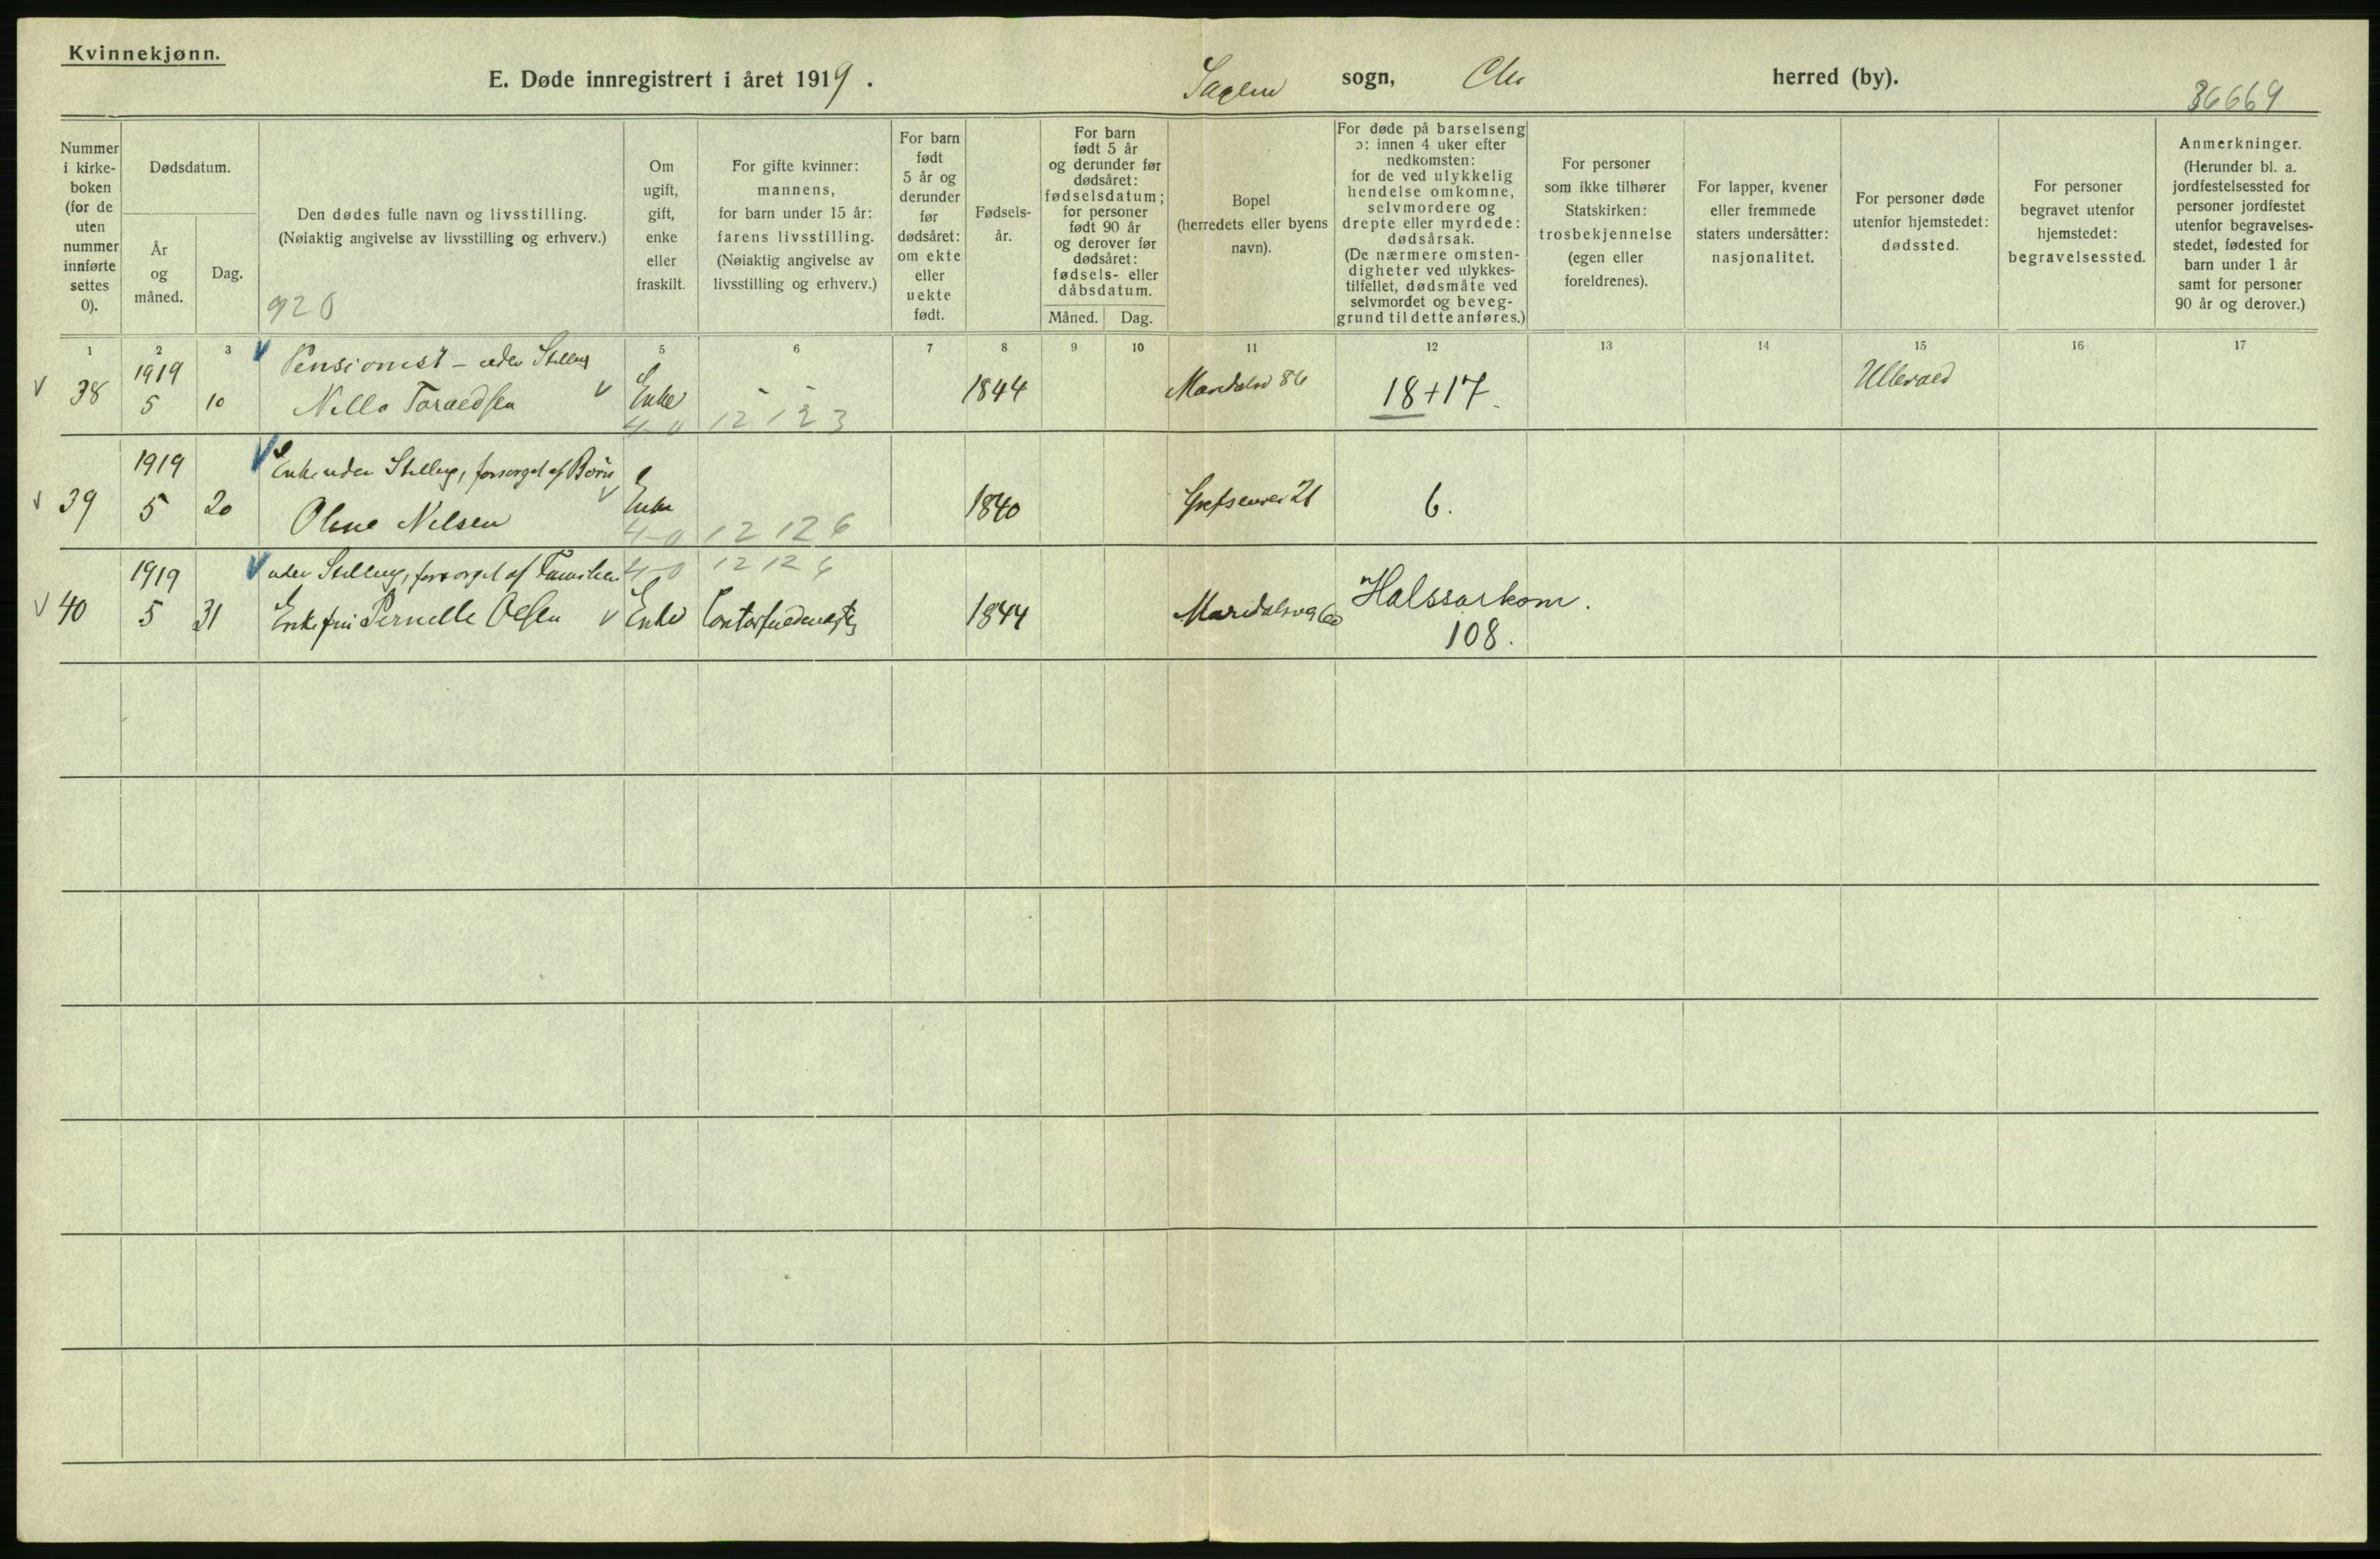 Kvinnekjønn.
E. Døde innregistrert i året 1919. Sagene sogn, Chr herred (by).
36669
Nummer i kirke-boken (for de uten nummer innførte settes 0).
Dødsdatum.
År og måned.
Dag.
Den dødes fulle navn og livsstilling.
(Nøiaktig angivelse av livsstilling og erhverv.)
920
Om ugift, gift, enke eller fraskilt.
For gifte kvinner: mannens, for barn under 15 år: farens livsstilling. (Nøiaktig angivelse av livsstilling og erhverv.)
For barn født 5 år og derunder før dødsåret: om ekte eller uekte født.
Fødsels-år.
For barn født 5 år og derunder før dødsåret: fødselsdatum; for personer født 90 år og derover før dødsåret: fødsels- eller dåbsdatum.
Måned. Dag.
Bopel (herredets eller byens navn).
For døde på barselseng ɔ: innen 4 uker efter nedkomsten: for de ved ulykkelig hendelse omkomne, selvmordere og drepte eller myrdede: dødsårsak. (De nærmere omsten-digheter ved ulykkes-tilfellet, dødsmåte ved selvmordet og beveg-grund til dette anføres.)
For personer som ikke tilhører Statskirken: trosbekjennelse (egen eller foreldrenes).
For lapper, kvener eller fremmede staters undersåtter: nasjonalitet.
For personer døde utenfor hjemstedet: dødssted.
For personer begravet utenfor hjemstedet: begravelsessted.
Anmerkninger. (Herunder bl. a. jordfestelsessted for personer jordfestet utenfor begravelses-stedet, fødested for barn under 1 år samt for personer 90 år og derover.)
1 2 3 5 6 7 8 9 10 11 12 13 14 15 16 17
1919 Pensionist - uden Stilling
38 5 10 Enke - - 1844 Maridalsv 86 18+17. Ullevaal
4-0 12123
1919 Enke uden Stilling, forsørget af Børn
39 5 20 Oline Nilsen Enke 1840 Grefsenvei 21 6.
4-0 12126
1919 uden Stilling, forsørget af Familien 4-0 12126
40 5 31 Enkefru Pernelle Olsen Enke 1844 Maridalsvg 60 Halssarkom.
108.